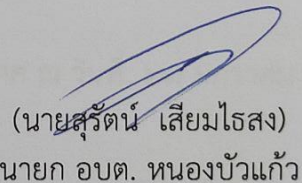 (นายสุรัตน์ เสียมไธสง)
นายก อบต. หนองบัวแก้ว